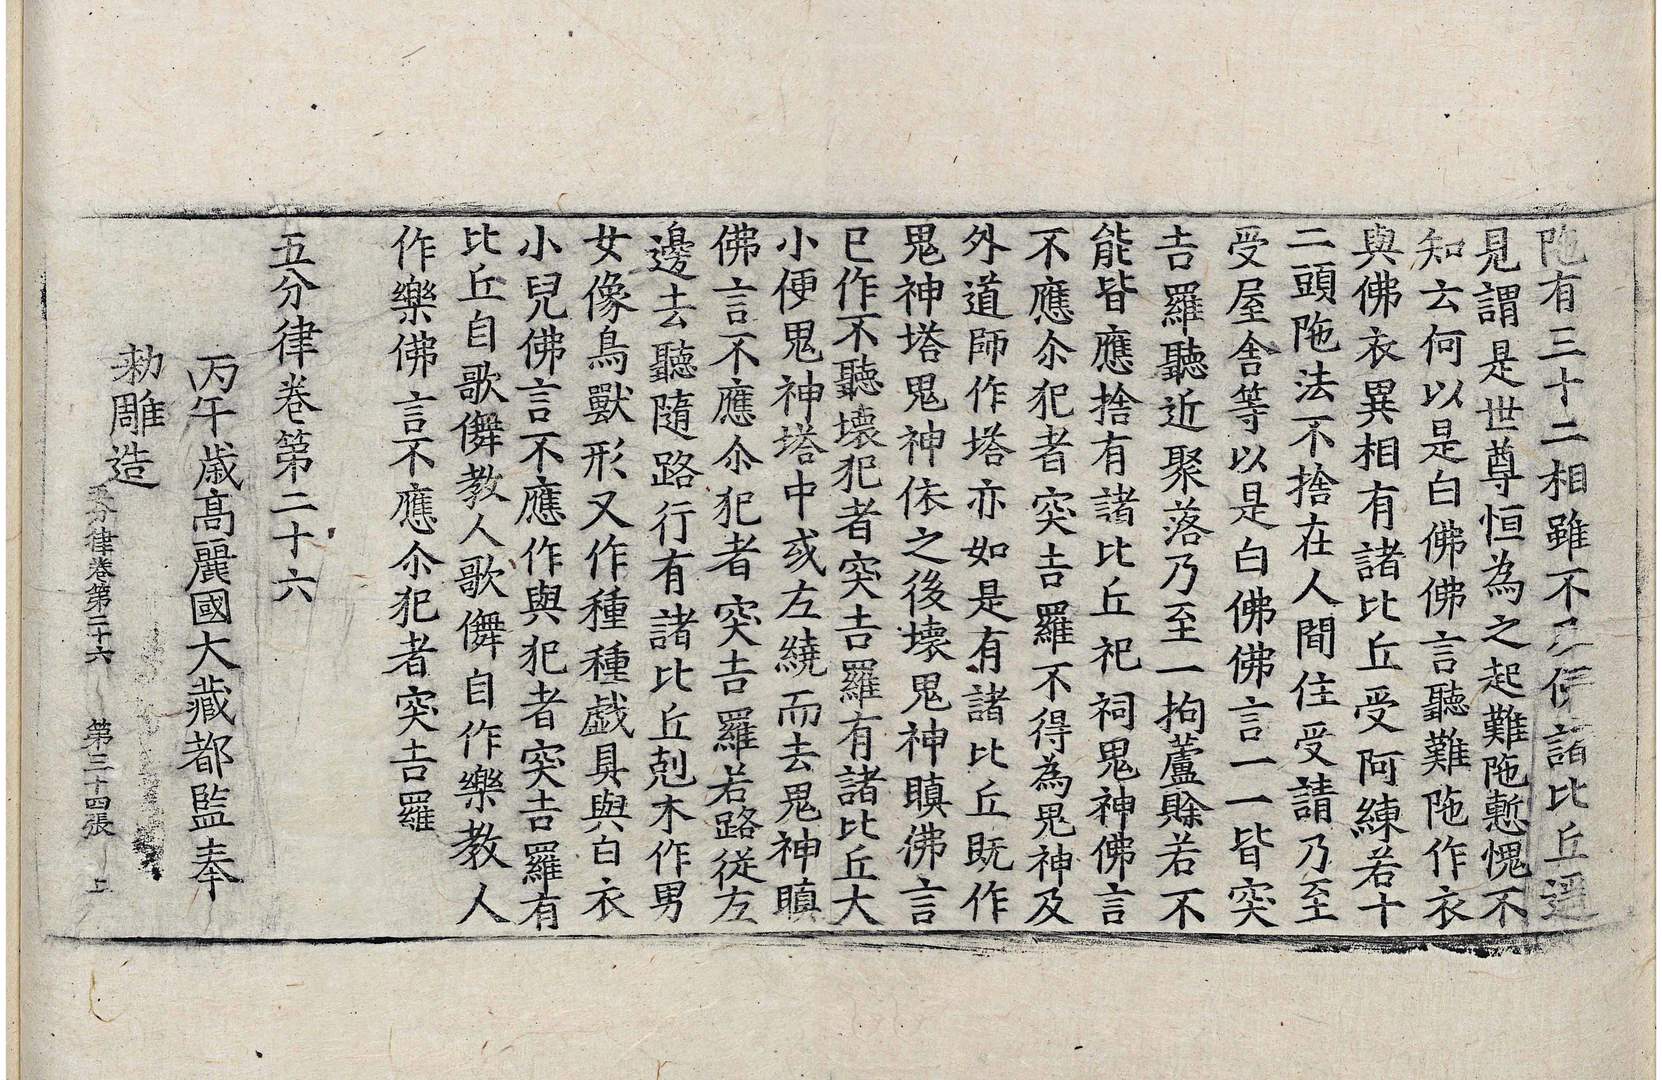 陁有三十二相雖不及佛諸比丘遥
見謂是世尊恒為之起難陁慙愧不
知云何以是白佛佛言聽難陁作衣
與佛衣異相有諸比丘受阿練若十
二頭陁法不捨在人間住受請乃至
受屋舍等以是白佛佛言一一皆突
吉羅聽近聚落乃至一拘蘆賖若不
能皆應捨有諸比丘祀祠鬼神佛言
不應尒犯者突吉羅不得為鬼神及
外道師作塔亦如是有諸比丘既作
鬼神塔鬼神依之後壞鬼神瞋佛言
已作不聽壞犯者突吉羅有諸比丘大
小便鬼神塔中或左繞而去鬼神瞋
佛言不應尒犯者突吉羅若路從左
邊去聽隨路行有諸比丘剋木作男
女像鳥獸形又作種種戲具與白衣
小兒佛言不應作與犯者突吉羅有
比丘自歌儛教人歌儛自作樂教人
作樂佛言不應尒犯者突吉羅
五分律卷第二十六
丙午歲高麗國大藏都監奉
勑雕造
五分律卷第二十六 第三十四張 上